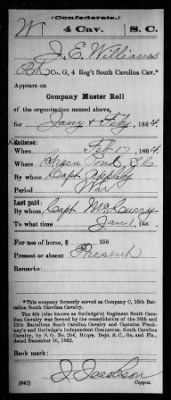 (Confederate.)
W 4 Cav. S. C.
J. E. Williams
Pvt, Co. G, 4 Reg't South Carolina Cav.*
Appears on
Company Muster Roll
of the organization named above,
for Jany & Feby, 1864.
Enlisted:
When Feb 17, 1864.
Where Green Pond, S.C.
By whom Capt Appleby
Period War
Last paid:
By whom Capt McCurry
To what time Jan 1, 186
For use of horse, $ 100
Present or absent Present
Remarks:
*This company formerly served as Company C, 10th Battalion South Carolina Cavalry.
The 4th (also known as Rutledge's) Regiment South Carolina Cavalry was formed by the consolidation of the 10th and 12th Battalions South Carolina Cavalry and Captains Pinckney's and Rutledge's Independent Companies, South Carolina Cavalry, by S. O. No. 254, Hdqrs. Dept. S. C., Ga. and Fla., dated December 16, 1862.
Book mark:
(642) J. Jacobson
Copyist.